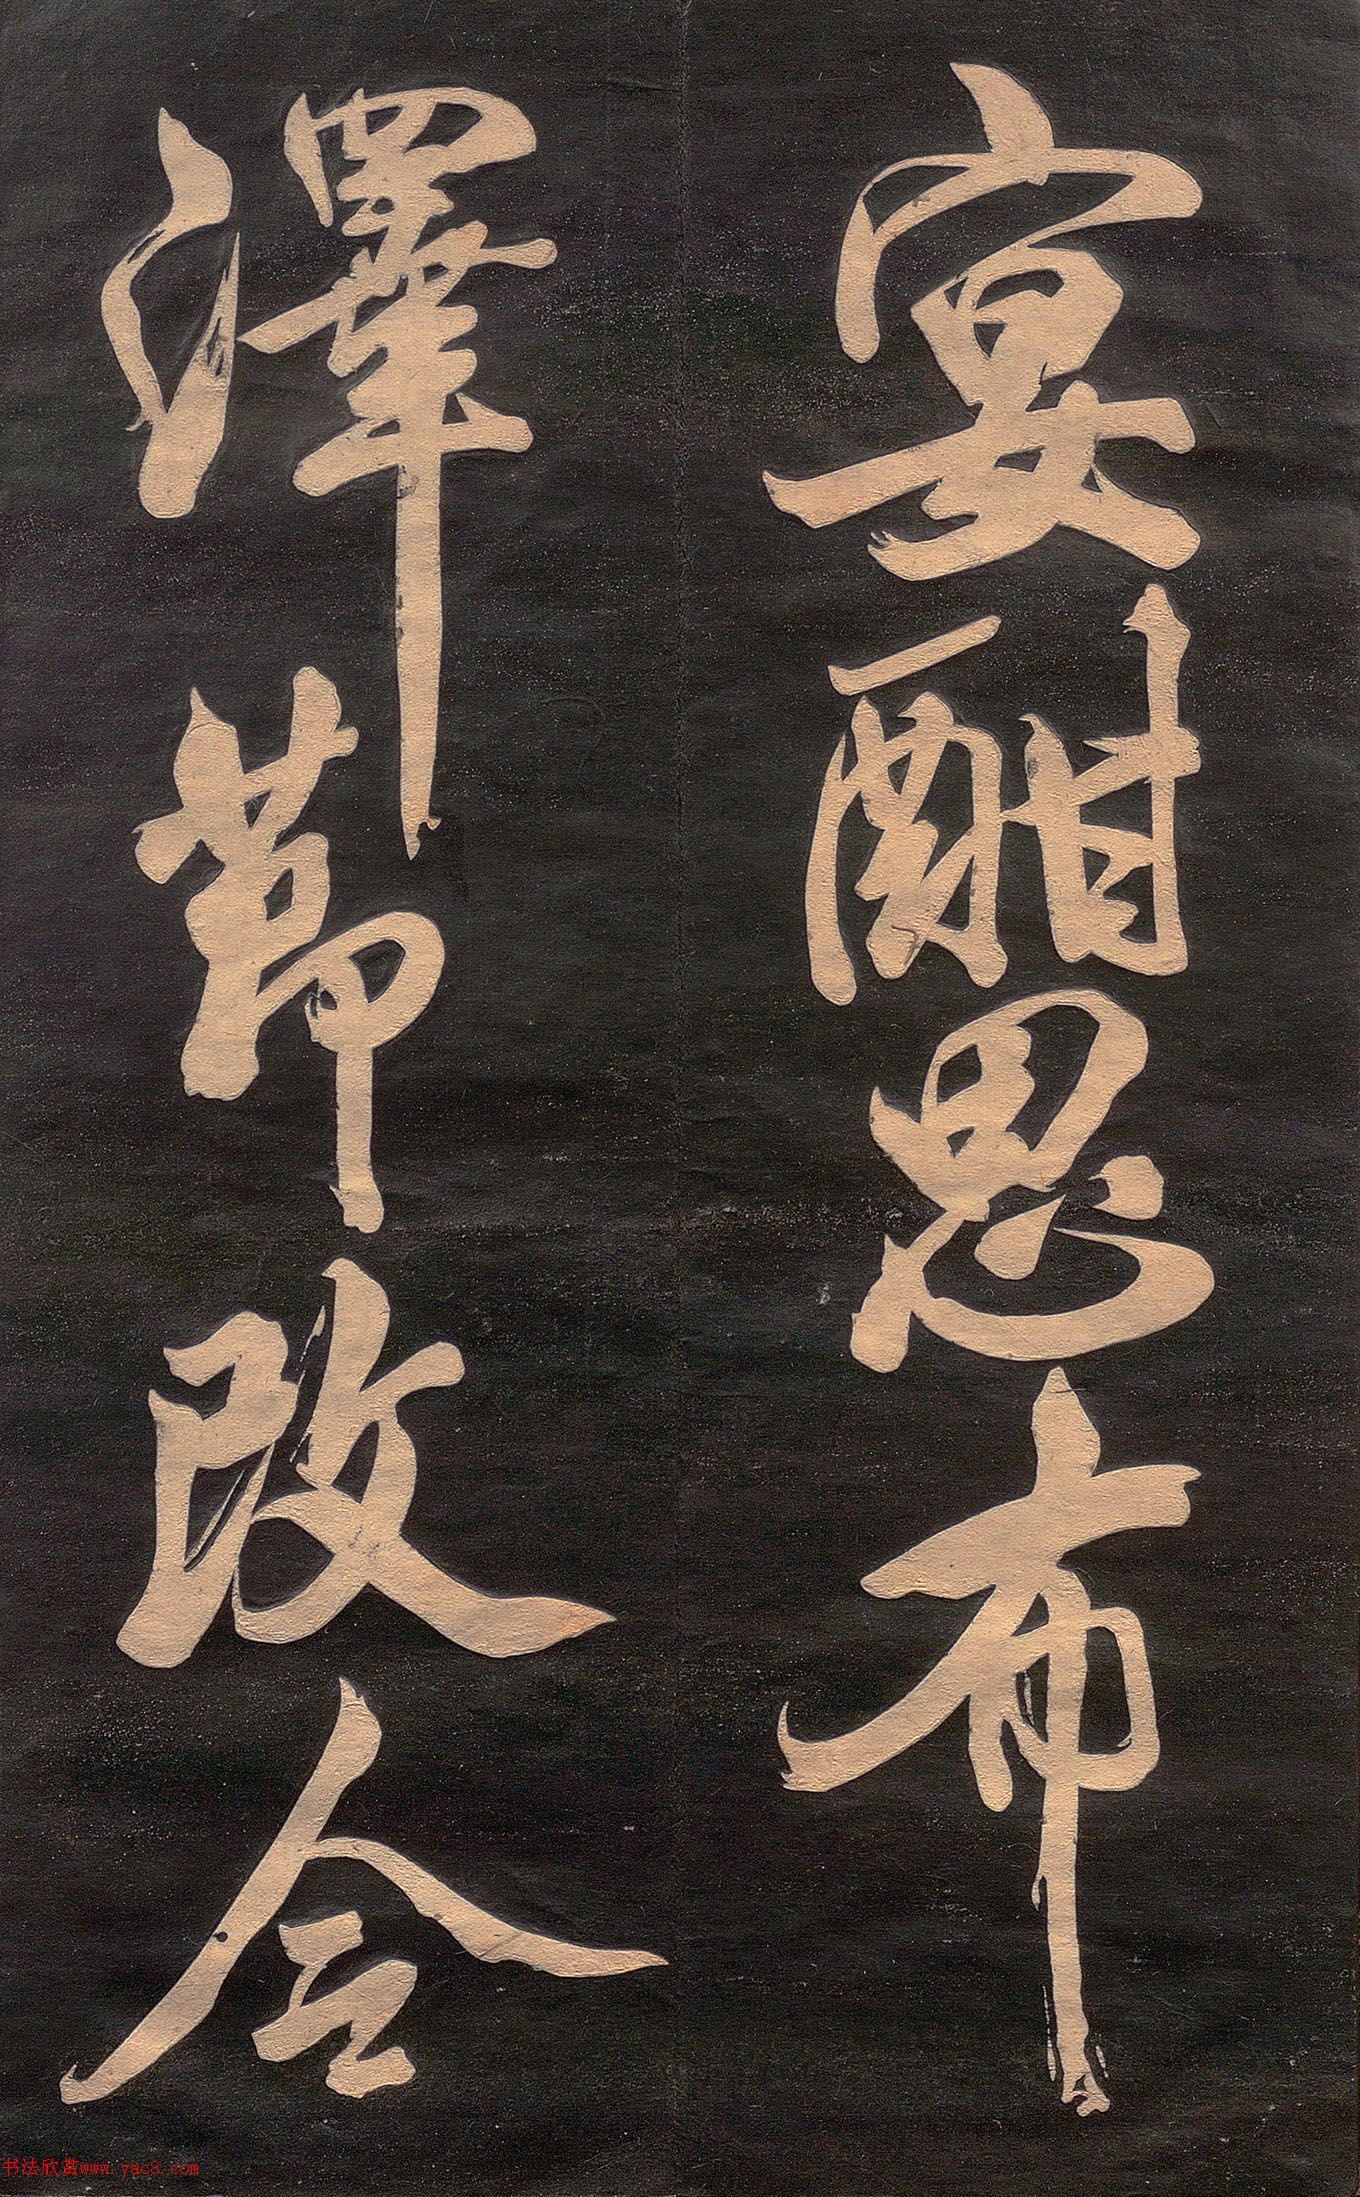 宴酣思布
澤節改令
书法欣赏www.yac8.com